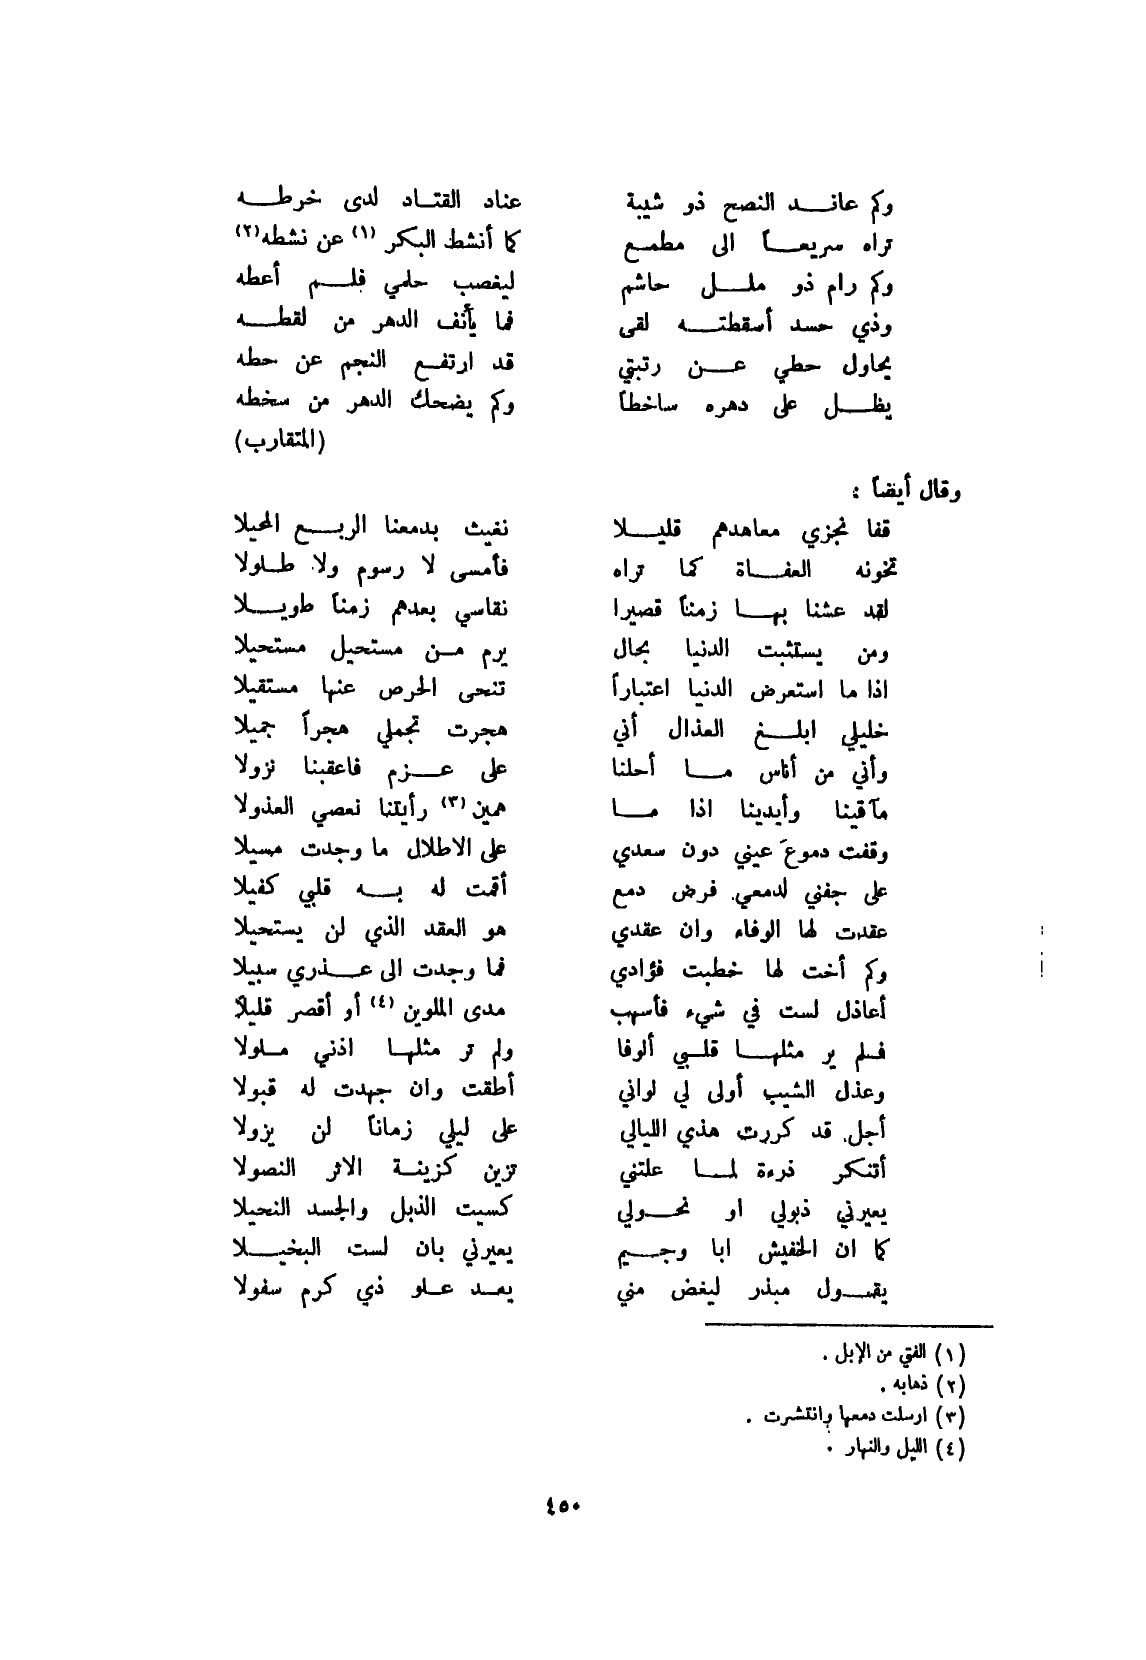 وكم عانـــد النصح ذو شيبة عناد القتـاد لدى خرطـــه
تراه سريعـــاً الى مطمـع كما أنشط البكر (١) عن نشطه(٢)
وكم رام ذو ملـــل حاشم ليغصب حلمي فلـــم أعطه
وذي حسد أسقطتـــه لقى فما يأنف الدهر من لقطـــه
يحاول حطي عـــن رتبتي قد ارتفـع النجم عن حطه
يظـــل على دهره ساخطاً وكم يضحك الدهر من سخطه
(المتقارب)
وقال أيضاً :
قفا نجزي معاهدهم قليـــلا نغيث بدمعنا الربـــع المحيلا
تخونه العفـــاة كما تراه فأمسى لا رسوم ولا طـلولا
لقد عشنا بهـــا زمناً قصيرا نقاسي بعدهم زمناً طويـــلا
ومن يستثبت الدنيا بحال يرم مـن مستحيل مستحيلا
اذا ما استعرض الدنيا اعتباراً تنحى الحرص عنها مستقيلا
خليلي ابلـــغ العذال أني هجرت تجملي هجراً جميلا
وأني من أناس مـــا أحلنا على عـــزم فاعقبنا نزولا
مآقينا وأيدينا اذا مـــا همين (٣) رأيتنا نعصي العذولا
وقفت دموعَ عيني دون سعدي على الاطلال ما وجدت مسيلا
على جفني لدمعي فرض دمع أقمت له بـــه قلبي كفيلا
عقدت لها الوفاء وان عقدي هو العقد الذي لن يستحيلا
وكم أخت لها خطبت فؤادي فما وجدت الى عـــذري سبيلا
أعاذل لست في شيء فأسهب مدى الملوين (٤) أو أقصر قليلاً
فـلم ير مثلهـــا قلـبي ألوفا ولم تر مثلهـا اذني مـلولا
وعذل الشيب أولى لي لواني أطقت وان جهدت له قبولا
أجل قد كررت هذي الليالي على ليلي زماناً لن يزولا
أتنكر ذرءة لمـــا علتني تزين كزينـة الاثر النصولا
يعيرني ذبولي او نحـــولي كسيت الذبل والجسد النحيلا
كما ان الخفيش ابا وجـــيم يعيرني بان لست البخيـــلا
يقـــول مبذر ليغض مني يعـد عـلو ذي كرم سفولا
(١) الفتي من الإبل .
(٢) ذهابه .
(٣) ارسلت دمعها وانتشرت .
(٤) الليل والنهار .
٤٥٠